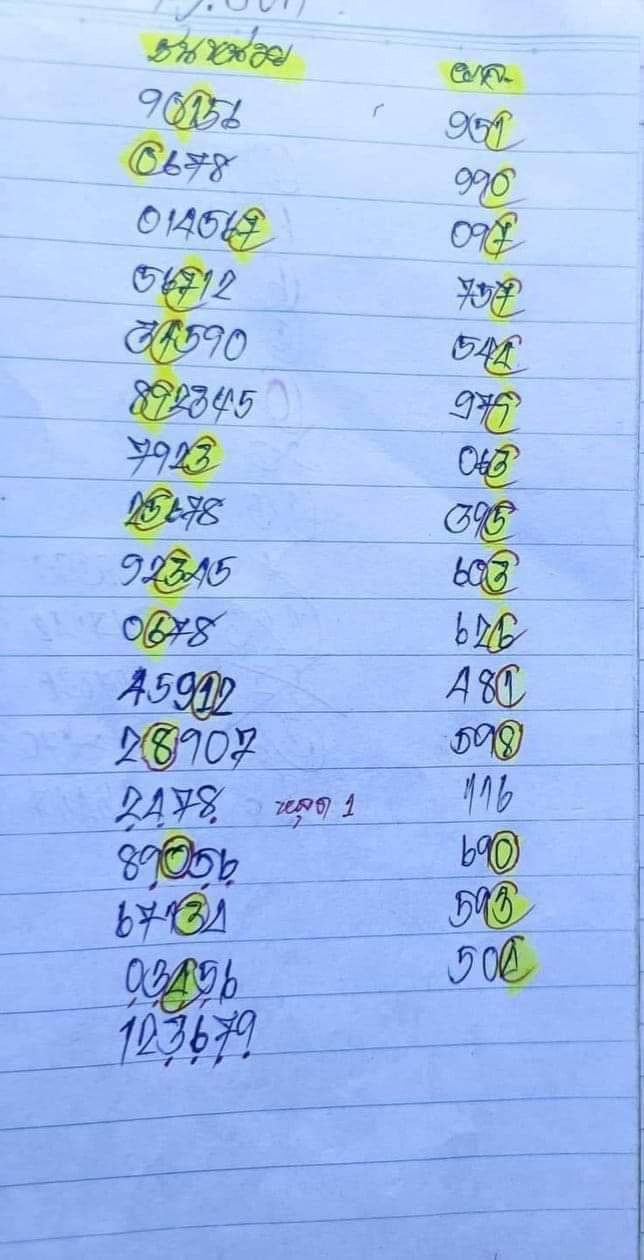 ชนหน่วย ผล
90156 951
0678 990
014567 097
56712 757
34590 544
892345 975
7923 063
25678 395
92345 603
0678 626
45912 481
28907 598
2478 หลุด 1 116
89056 690
67134 593
03456 504
123679